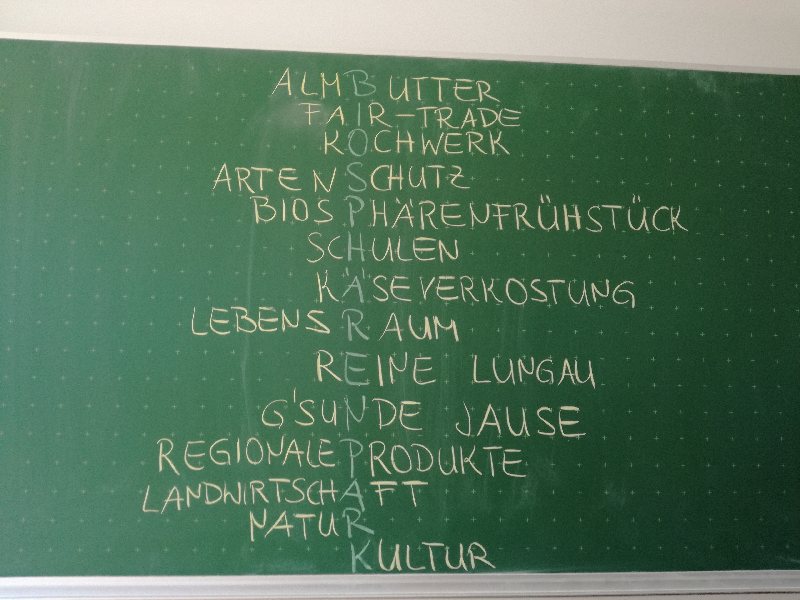 ALMBUTTER
FAIR-TRADE
KOCHWERK
ARTENSCHUTZ
BIOSPHÄRENFRÜHSTÜCK
SCHULEN
KÄSEVERKOSTUNG
LEBENSRAUM
REINE LUNGAU
G'SUNDE JAUSE
REGIONALE PRODUKTE
LANDWIRTSCHAFT
NATUR
KULTUR